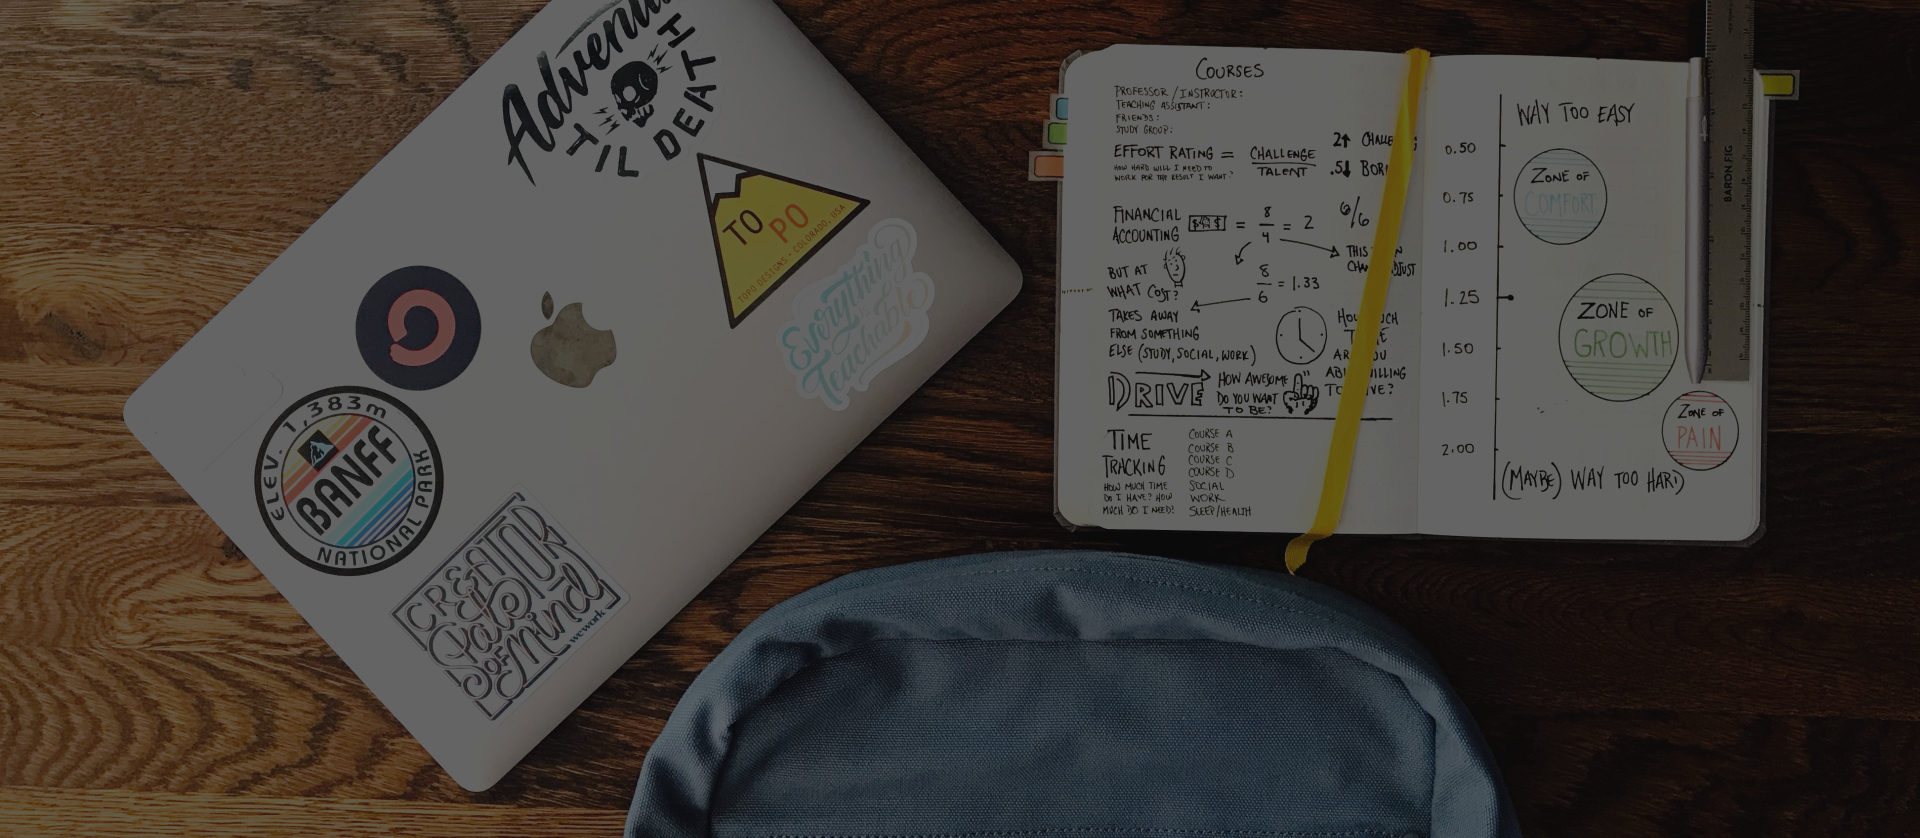 TIL DEATH
TO
PO
TOPO DESIGNS • COLORADO, USA
Everything
Teachable
ELEV. 1,383m
BANFF
NATIONAL PARK
CREATOR
State
OF
Mind
wework
COURSES
PROFESSOR / INSTRUCTOR:
TEACHING ASSISTANT:
FRIENDS:
STUDY GROUP:
EFFORT RATING = CHALLENGE
TALENT
HOW HARD WILL I NEED TO
WORK FOR THE RESULT I WANT?
2↑
.5↓
FINANCIAL
ACCOUNTING
$ $ = 8/4 = 2
6/6
THIS
BUT AT
WHAT COST?
8/6 = 1.33
TAKES AWAY
FROM SOMETHING
ELSE (STUDY, SOCIAL, WORK)
DRIVE
HOW AWESOME
DO YOU WANT
TO BE?
TIME
TRACKING
HOW MUCH TIME
DO I HAVE? HOW
MUCH DO I NEED?
COURSE A
COURSE B
COURSE C
COURSE D
SOCIAL
WORK
SLEEP/HEALTH
WAY TOO EASY
0.50
0.75
1.00
1.25
1.50
1.75
2.00
ZONE OF
COMFORT
ZONE OF
GROWTH
ZONE OF
PAIN
(MAYBE) WAY TOO HARD
BARON FIG